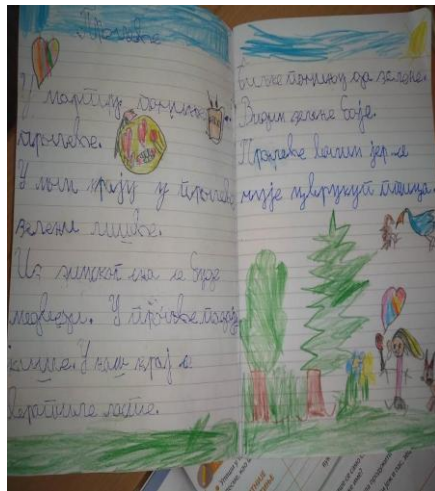 Пролеће
У марту почиње
пролеће.
У мом крају у пролеће
зелени лишће.
Из зимског сна се буде
медведи. У пролеће падају
кише. У наш крај се
вратиле ласте.
Биљке почињу да зелене.
Видим зелене боје.
Пролеће волим јер се
чује цвркут птица.